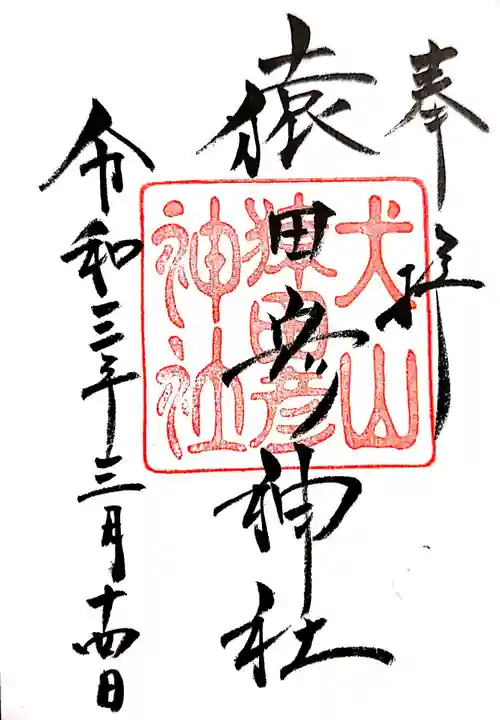 奉拝
猿田彦神社
犬山
猿田彦
神社
令和三年三月十四日